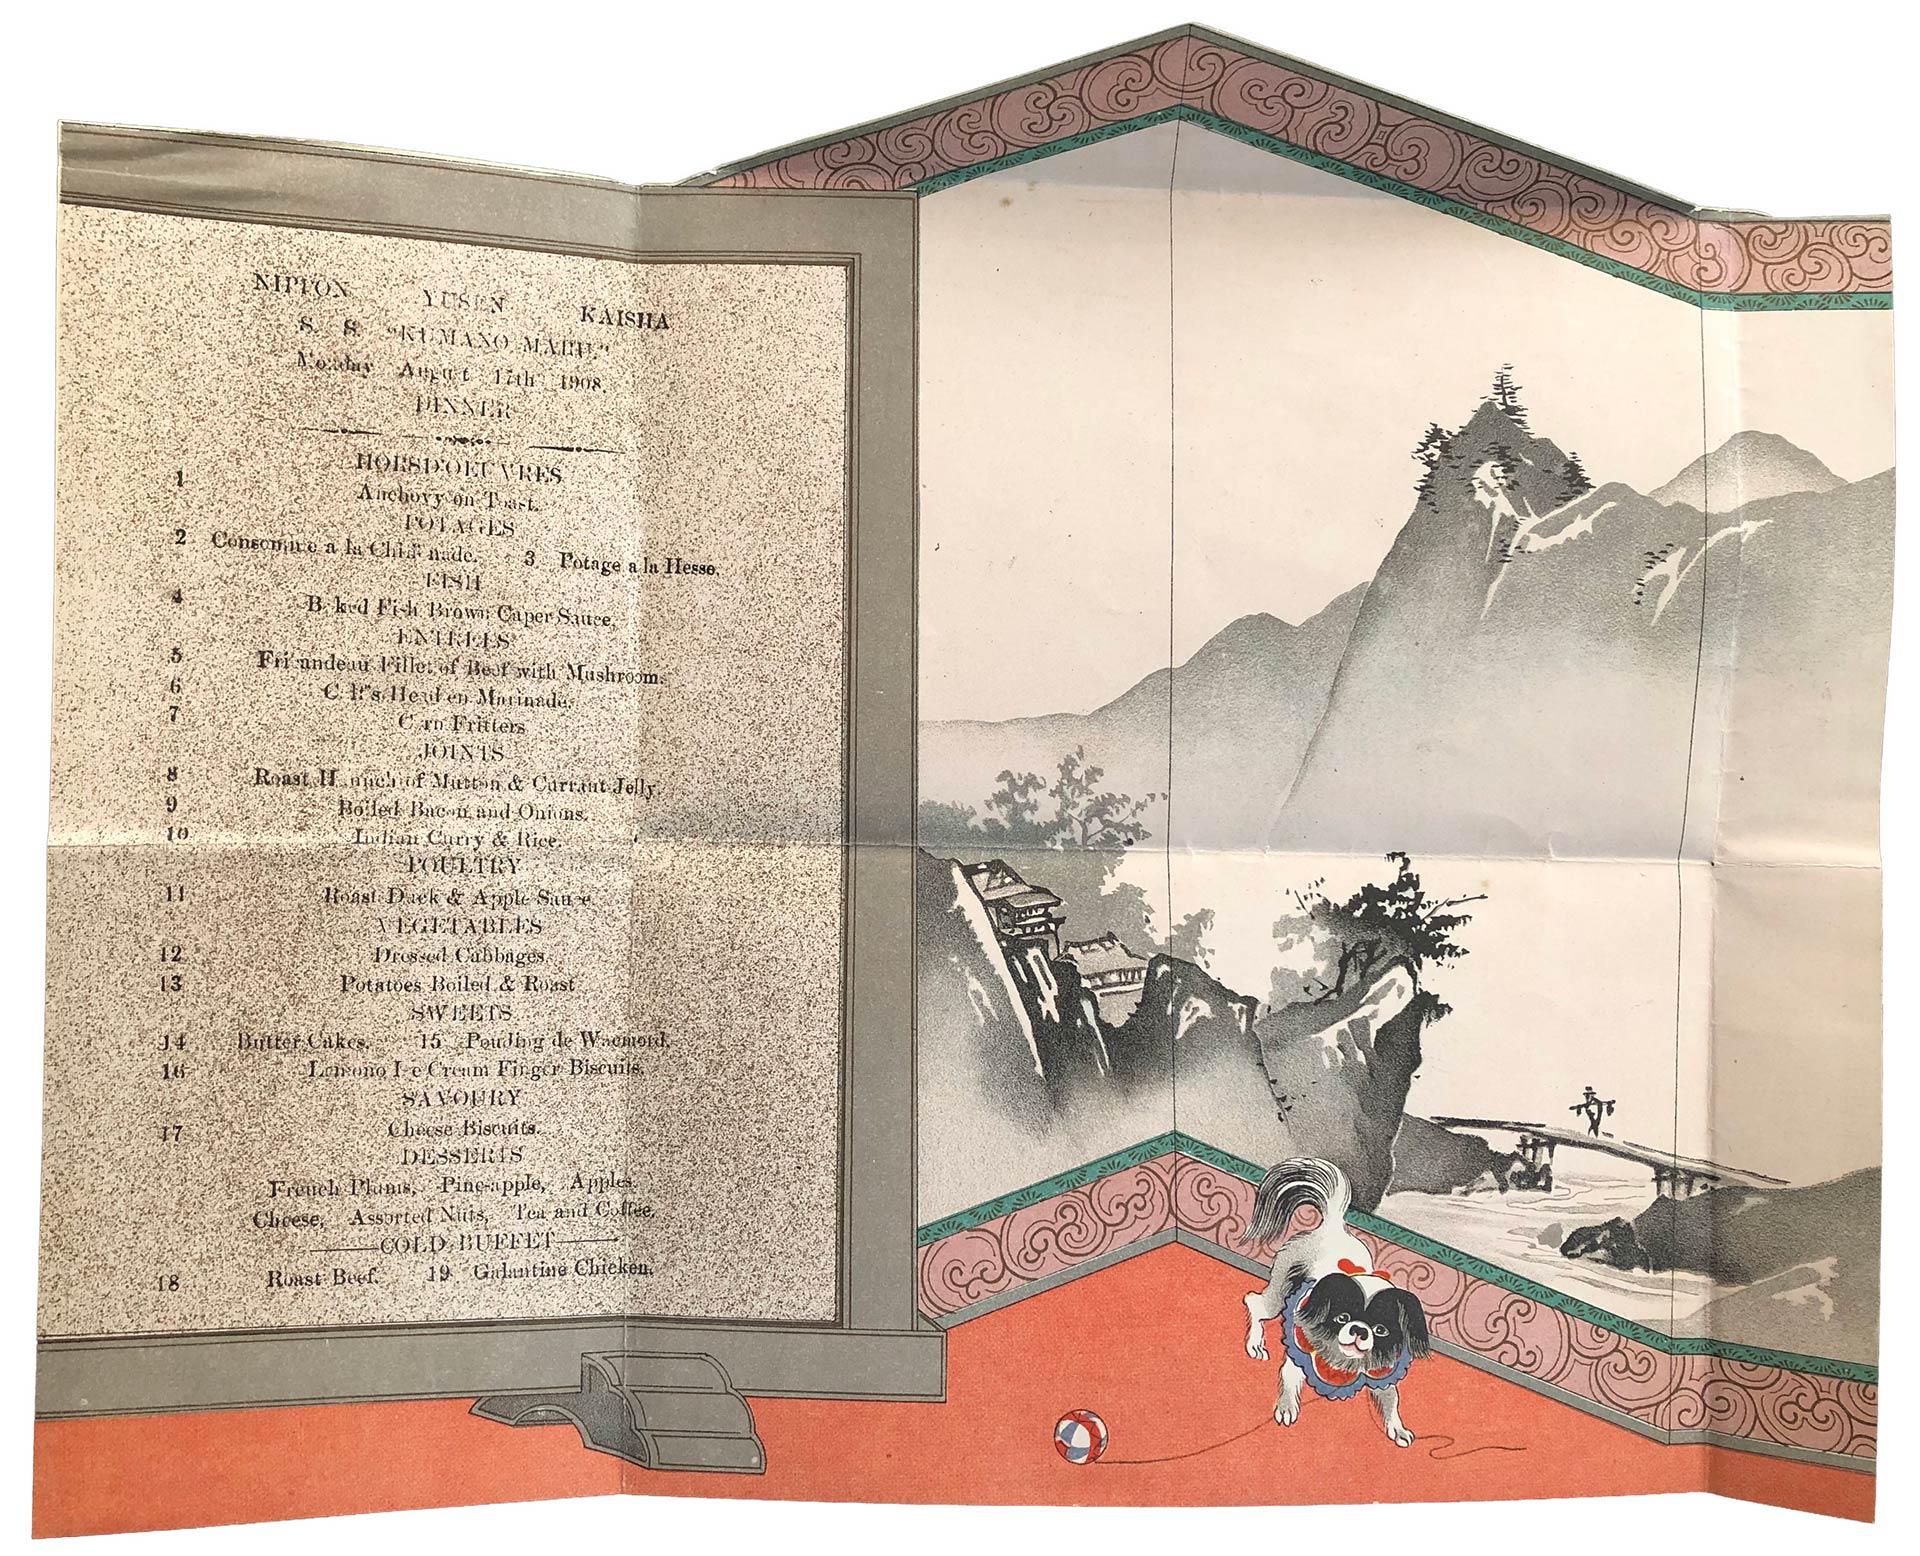 NIPPON YUSEN KAISHA
S. S. "KUMANO MARU."
Monday August 17th 1908.
DINNER
HORSD'OEUVRES
1 Anchovy on Toast.
POTAGES
2 Consomme a la Chiffonade. 3 Potage a la Hesse.
FISH
4 Baked Fish Brown Caper Sauce.
ENTREES
5 Fricandeau Fillet of Beef with Mushroom.
6 Calf's Head en Marinade.
7 Corn Fritters
JOINTS
8 Roast Haunch of Mutton & Currant Jelly.
9 Boiled Bacon and Onions.
10 Indian Curry & Rice.
POULTRY
11 Roast Duck & Apple Sauce
VEGETABLES
12 Dressed Cabbages.
13 Potatoes Boiled & Roast
SWEETS
14 Butter Cakes. 15 Pouding de
16 Ice Cream Finger Biscuits.
SAVOURY
17 Cheese Biscuits.
DESSERTS
French Plums, Pine-apple, Apples
Cheese, Assorted Nuts, Tea and Coffee.
COLD BUFFET
18 Roast Beef. 19 Galantine Chicken.